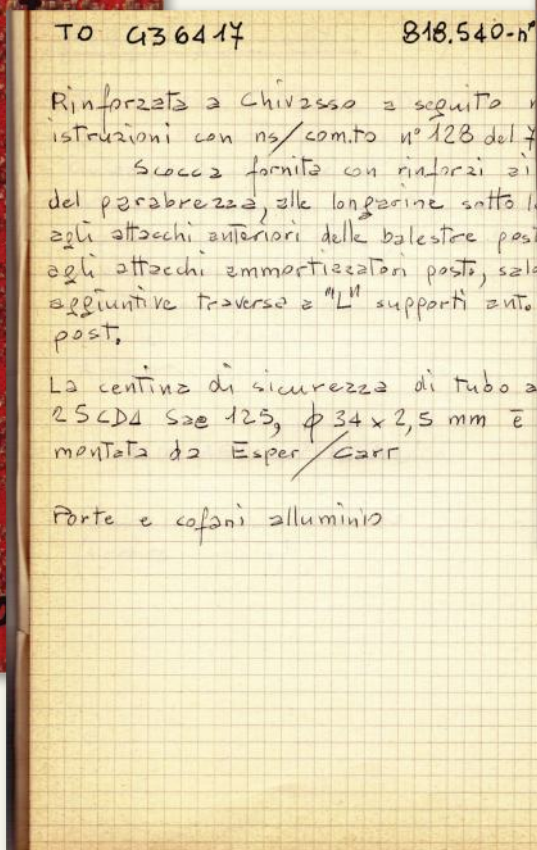 TO G36417 818.540-n°
Rinforzata a Chivasso a seguito n
istruzioni con ns/com.to n° 128 del 7
Scocca fornita con rinforzi ai
del parabrezza, alle longarine sotto l
agli attacchi anteriori delle balestre post
agli attacchi ammortizzatori post., sald
aggiuntive traversa a "L" supporti ant.
post.
La centina di sicurezza di tubo a
25CD4 Sae 125, ϕ 34 x 2,5 mm è
montata da Esper/Carr
Porte e cofani alluminio